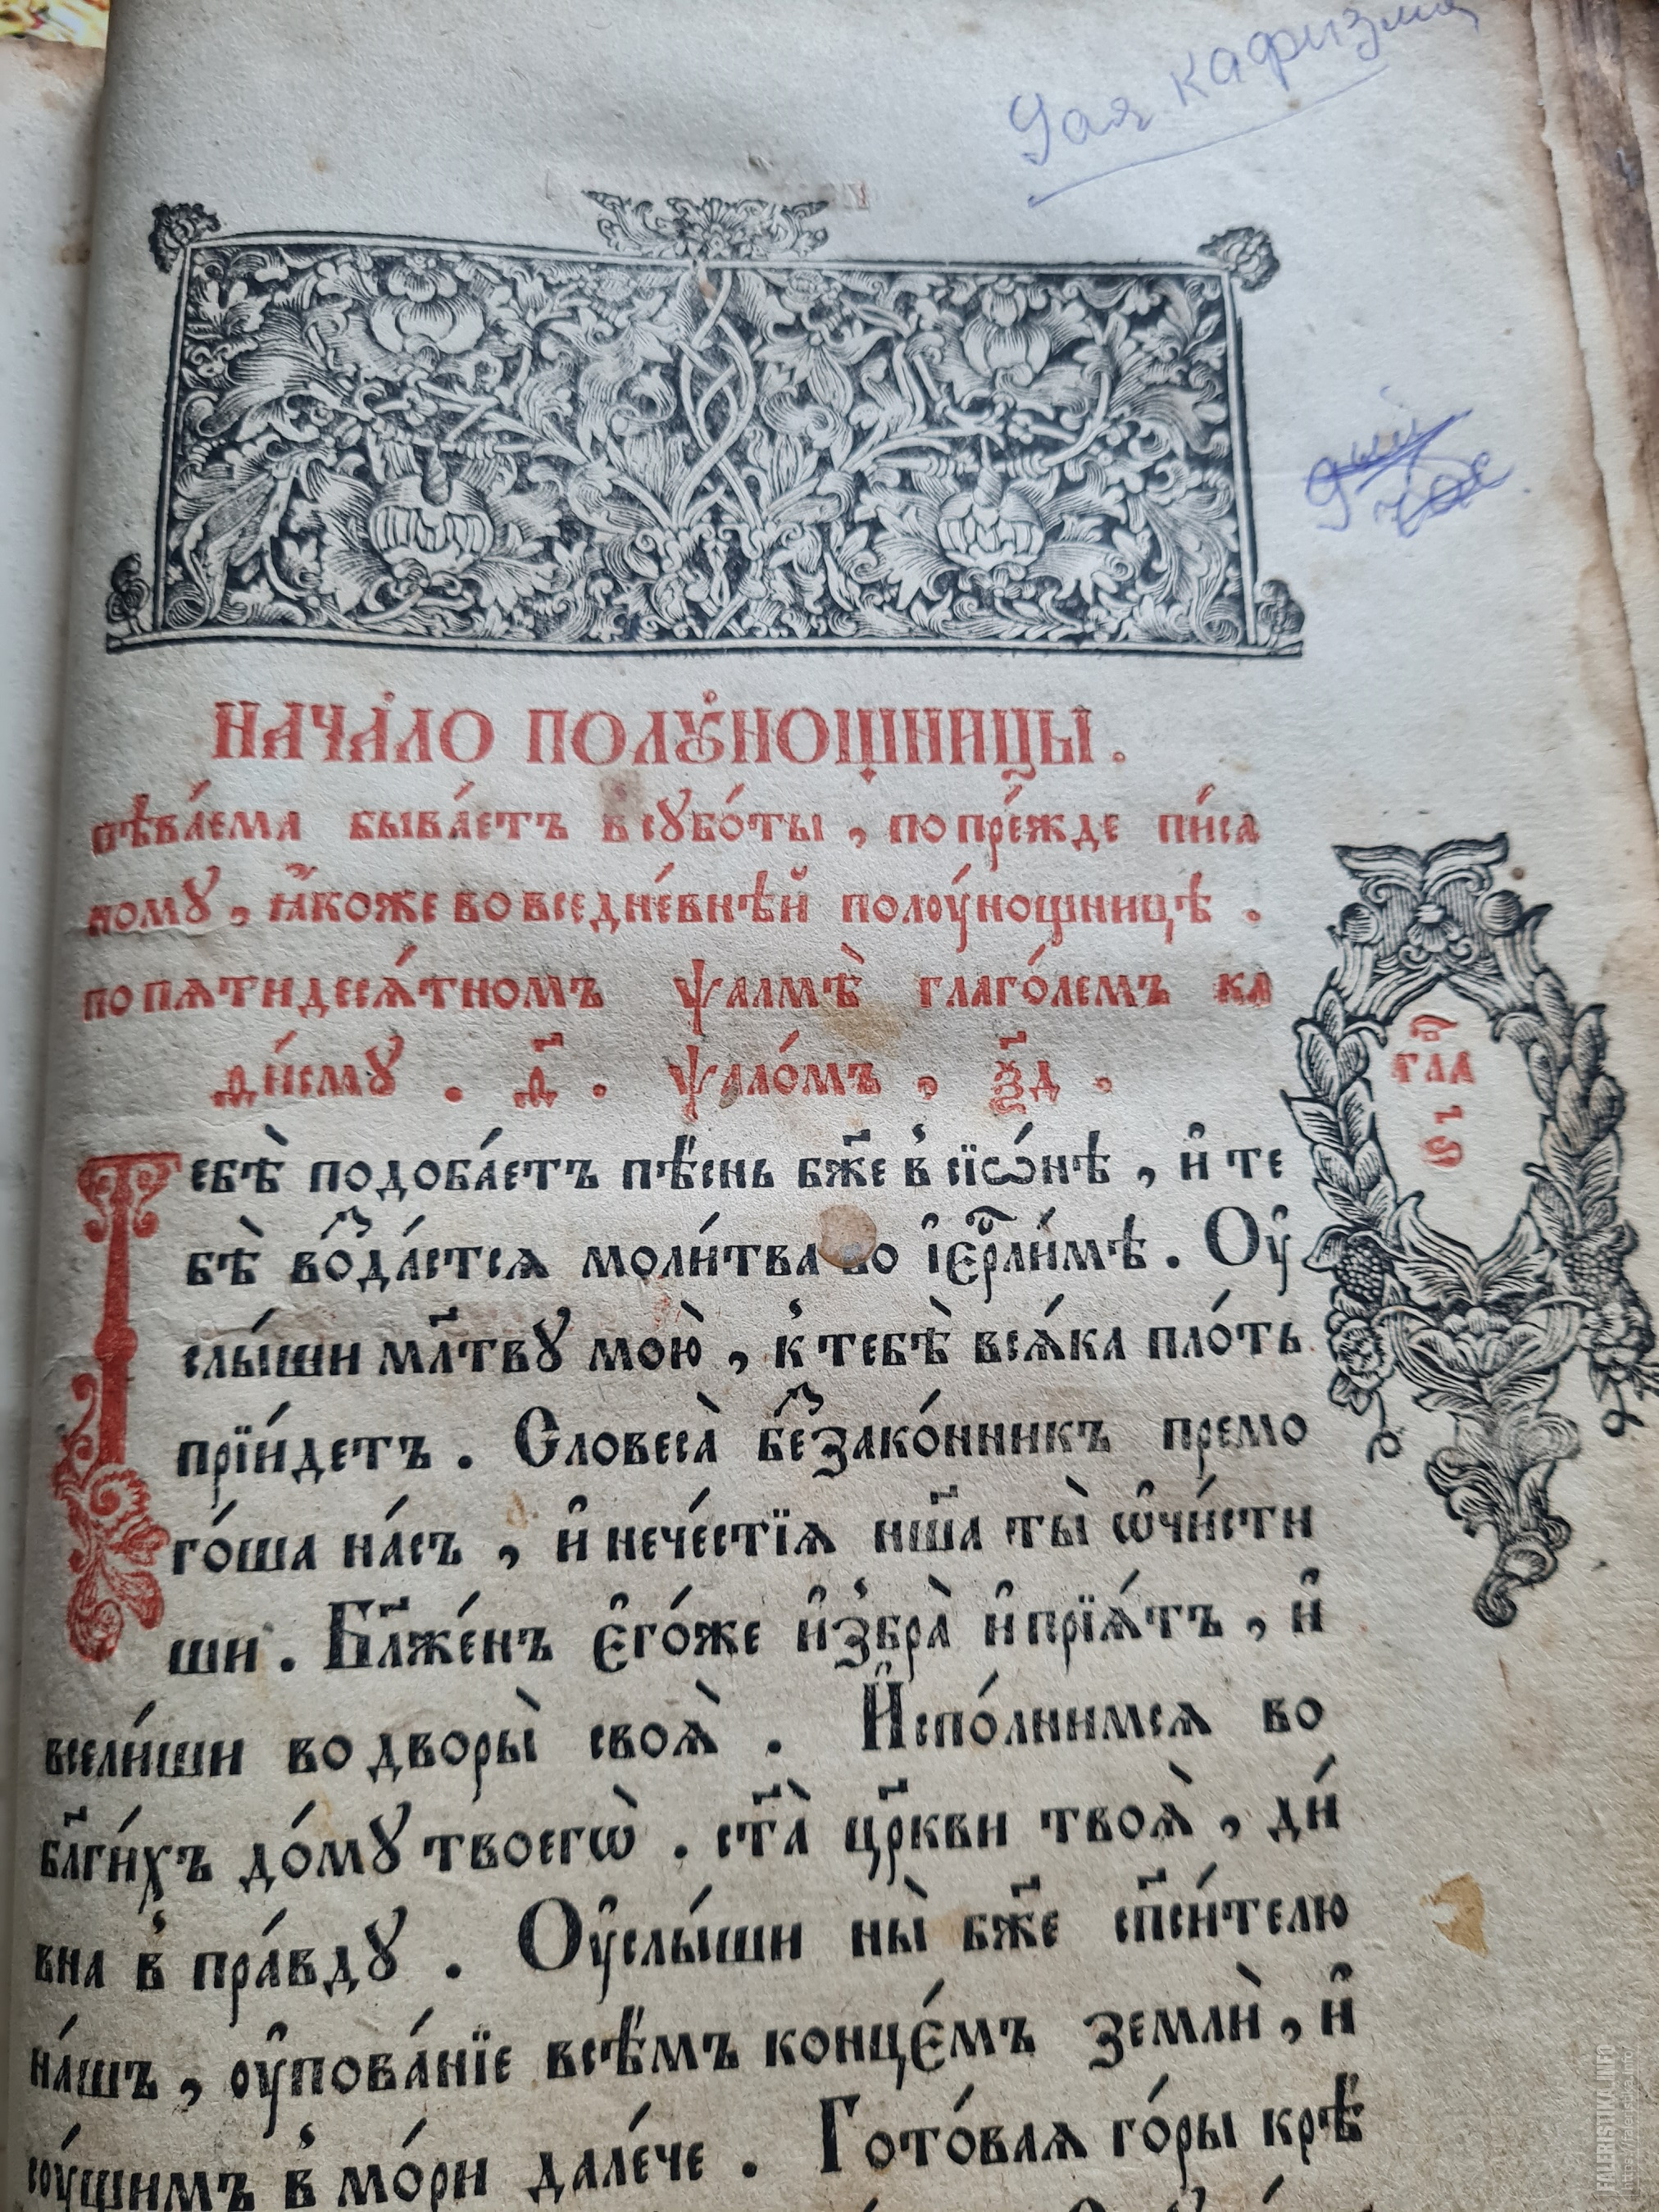 9ая кафизма
9ый
час
НАЧА́ЛО ПОЛꙊ́НОЩНИЦЫ.
пѣва́ема быва́етъ в҆ сꙋбо́ты, по пре́жде пи́са
ному, ꙗ҆́коже во вседне́внѣй полоу́нощницѣ.
по пѧтидесѧ́тномъ ѱалмѣ̀ глаго́лемъ ка
ди́сму. д҃. ѱало́мъ, ѯ҃д.
гла
Тебѣ̀ подоба́етъ пѣ́снь бж҃е в҆ сїѡ́нѣ, и҆ те
бѣ̀ воⷥда́стсѧ моли́тва во і҆ерⷭ҇ли́мѣ. Оу҆
слы́ши мл҃твꙋ мою̀, к҆ тебѣ̀ всѧ́ка пло́ть
прїи́детъ. Словеса̀ беⷥзако́нникъ премо
го́ша на́съ, и҆ нече́стїѧ нш҃а ты̀ ѡ҆чи́сти
ши. Бл҃же́нъ є҆го́же и҆збра̀ и҆ прїѧ́тъ, и҆
всели́ши во дворы̀ своѧ̀. И҆спо́лнимсѧ во
бл҃ги́хъ до́мꙋ твоегѡ̀. ст҃а̀ цр҃кви твоѧ̀, ди́
вна в҆ пра́вдꙋ. Оу҆слы́ши ны̀ бж҃е сп҃си́телю
на́шъ, оу҆пова́нїе всѣ́мъ конце́мъ землѝ, и҆
соу́щимъ в҆ мо́ри дале́че. Гото́ваѧ го́ры крѣ́
FALERISTIKA.INFO
https://faleristika.info/